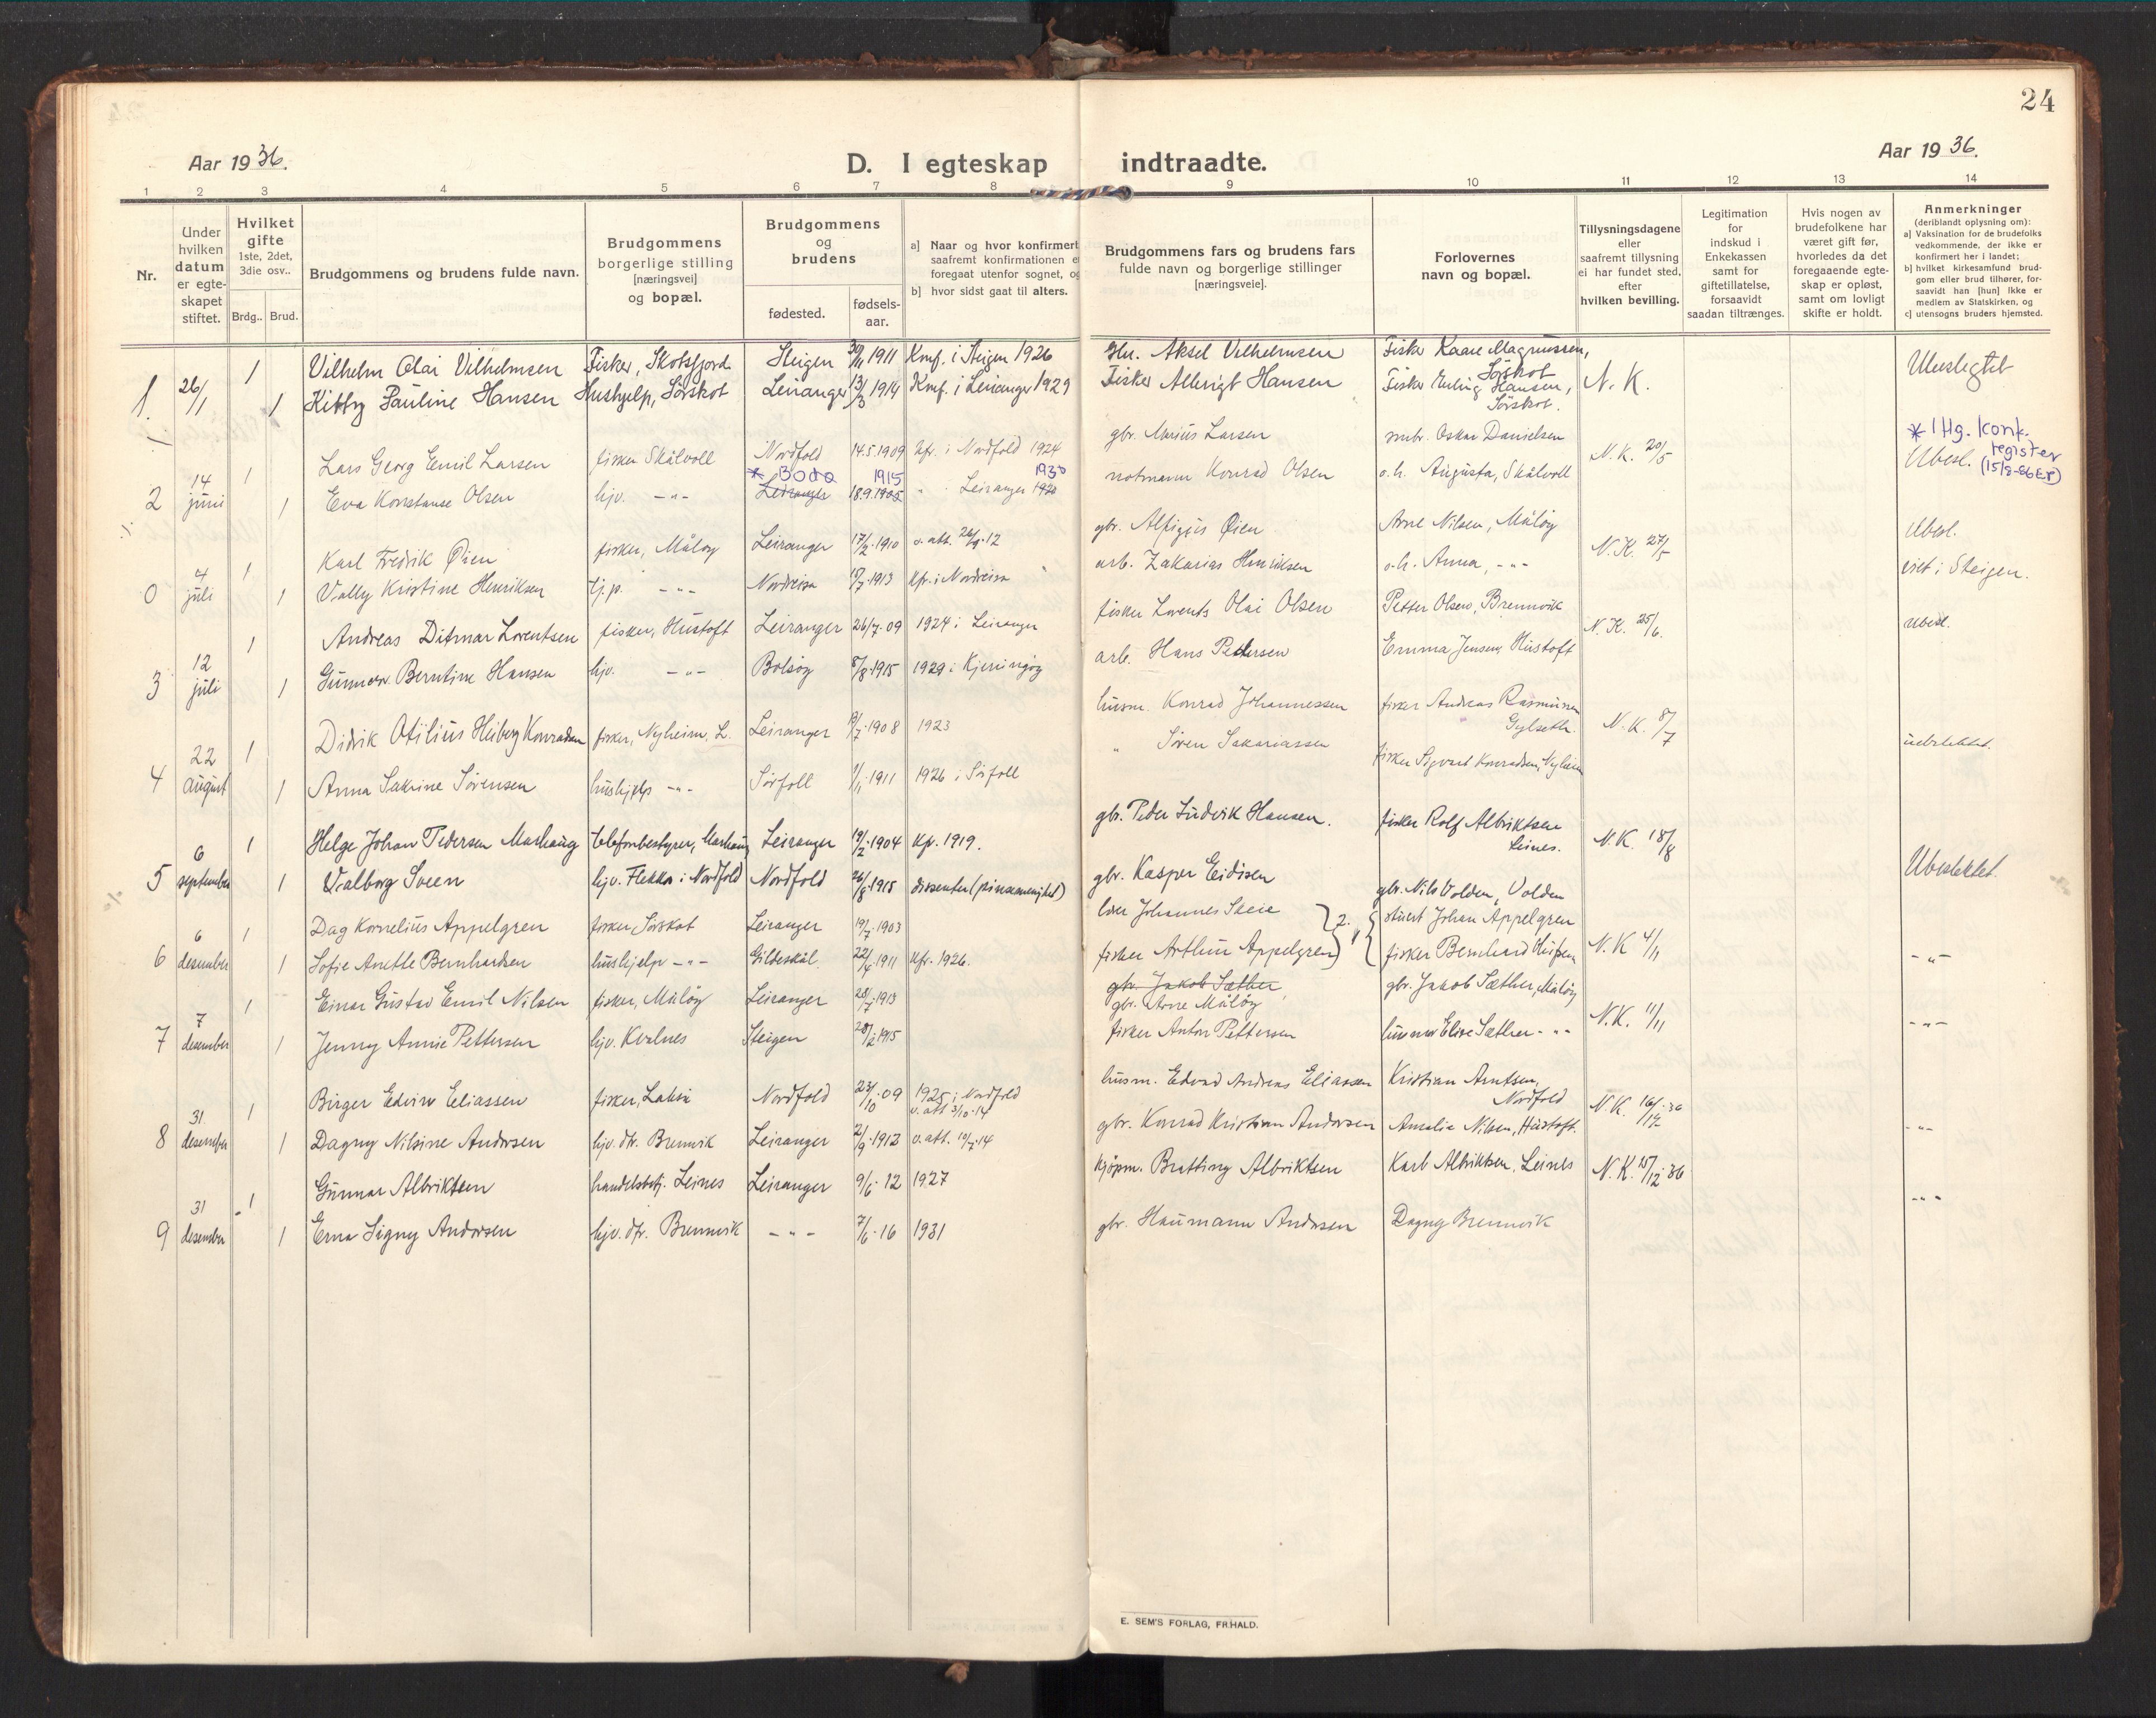 24
Aar 1936.
D. I egteskap indtraadte.
Aar 1936.
1 2 3 4 5 6 7 8 9 10 11 12 13 14
Nr.
Under hvilken datum er egteskapet stiftet.
Hvilket gifte 1ste, 2det, 3die osv..
Brdg.. Brud.
Brudgommens og brudens fulde navn.
Brudgommens borgerlige stilling [næringsvei] og bopæl.
Brudgommens og brudens
fødested. fødselsaar.
a] Naar og hvor konfirmert
saafremt konfirmationen e
foregaat utenfor sognet, og
b] hvor sidst gaat til alters.
Brudgommens fars og brudens fars
fulde navn og borgerlige stillinger
[næringsveie].
Forlovernes
navn og bopæl.
Tillysningsdagene
eller
saafremt tillysning
ei har fundet sted,
efter
hvilken bevilling.
Legitimation
for
indskud i
Enkekassen
samt for
giftetillatelse,
forsaavidt
saadan tiltrænges.
Hvis nogen av
brudefolkene har
været gift før,
hvorledes da det
foregaaende egte-
skap er opløst,
samt om lovligt
skifte er holdt.
Anmerkninger
(deriblandt oplysning om):
a] Vaksination for de brudefolks
vedkommende, der ikke er
konfirmert her i landet;
b] hvilket kirkesamfund brud-
gom eller brud tilhører, for-
saavidt han [hun] ikke er
medlem av Statskirken, og
c] utensogns bruders hjemsted.
1 Vilhelm Olai Vilhelmsen Fisker, Skotsfjord Steigen 30/11 1911 Konf. i Steigen 1926 Aksel Vilhelmsen Fisker Kaare Magnussen, Sörskot
1. 26/1 1 Kitty Pauline Hansen Hushjelp, Sörskot Leiranger 13/3 1914 Konf. i Leiranger 1929 Fisker Albrigt Hansen Fisker Erling Hansen, Sörskot. N. K. Ubeslegtet
1 Lars Georg Emil Larsen fisker Skålvoll Nordfold 14.5.1909 kfr. i Nordfold 1924 gbr. Marius Larsen smbr. Oskar Danielsen N. K. 20/5 Ubesl.
* Bodø 1915 1930
* IHg. konf. register (15/8-86 EP)
2 14 juni 1 Eva Konstanse Olsen hjv. -"- Leiranger 18.9.1905 " Leiranger 1920 notmann Konrad Olsen o.h. Augusta, Skålvoll
1 Karl Fredrik Øien fisker, Måløy Leiranger 17/2.1910 v. att. 26/9.12 gbr. Alfigius Øien Arne Nilsen, Måløy N. K. 27/5 Ubesl.
0 4 juli 1 Vally Kristine Henriksen tj.p. -"- Nordreisa 15/7.1913 kfr. i Nordreisa arb. Zakarias Henriksen o.h. Anna, -"- viet i Steigen.
1 Andreas Ditmar Lorentsen fisker, Hustoft Leiranger 26/7.09 1924 i Leiranger fisker Lorents Olai Olsen Petter Olsen, Brennvik N. K. 25/6. Ubesl.
3 12 juli 1 Gunnvor Berntine Hansen hjv. -"- Bolsøy 8/8.1915 1929 i Kjerringøy arb. Hans Pettersen Emma Jensen, Hustoft
1 Didrik Otilius Heiberg Konradsen fisker, Nyheim, L. Leiranger 19/7.1908 1923 husm. Konrad Johannessen fisker Andreas Rasmussen Gylseth. N. K. 8/7 uebeslektet.
4 22 august 1 Anna Sakrine Sörensen hushjelp -"- Sörfold 1/11 1911 1926 i Sörfold " Sören Sakariassen fisker Sigvart Konradsen, Nyheim
1 Helge Johan Pedersen Marhaug telefonbestyrer, Marhaug Leiranger 19/2 1904 kfr. 1919. gbr. Peder Ludvik Hansen. fisker Rolf Albriktsen Leines. N. K. 18/8
5 6 september 1 Valborg Sveen hjv. Flekka i Nordfold Nordfold 26/8.1915 dissenter (pinsemenighet) gbr. Kasper Eidisen gbr. Nils Volden, Volden Ubeslektet
1 Dag Kornelius Appelgren fisker Sörskot Leiranger 19/7.1903 lærer Johannes Skeie 2. stuert Johan Appelgren
6 6 desember 1 Sofie Anette Bernhardsen hushjelp -"- Gildeskål 22/4 1911 kfr. 1926. fisker Arthur Appelgren 1 fisker Bernhard N. K 4/11 -"-
1 Einar Gustav Emil Nilsen fisker, Måløy Leiranger 28/7.1913 gbr. Jakob Sæther gbr. Arne Måløy gbr. Jakob Sæther, Måløy N. K. 11/11 -"-
7 7 desember 1 Jenny Annie Pettersen hjv. Kvalnes Steigen 28/2 1915 fisker Anton Pettersen husmor Elise Sæther -"-
1 Birger Edvin Eliassen fisker, Lakså Nordfold 23/10.09 1925 i Nordfold v. att 3/10.14 husm. Edvard Andreas Eliassen Kristian Arntsen, Nordfold N. K. 16/12.36
8 31. desember 1 Dagny Nilsine Andersen hjv. dtr. Brennvik Leiranger 2/9.1912 v. att. 10/7.14 gbr. Konrad Kristian Andersen Amalie Nilsen, Hustoft. -"-
1 Gunnar Albriktsen handelsbetj. Leines Leiranger 9/6 12 1927 kjöpm. Bratting Albriktsen Karl Albriktsen, Leines N. K. 15/12 36
9 31 desember 1 Erna Signy Andersen hjv. dtr. Brennvik -"- 7/6.16 1931 gbr. Haumann Andersen Dagny Brennvik -"-
E. SEM'S FORLAG, FR.HALD.